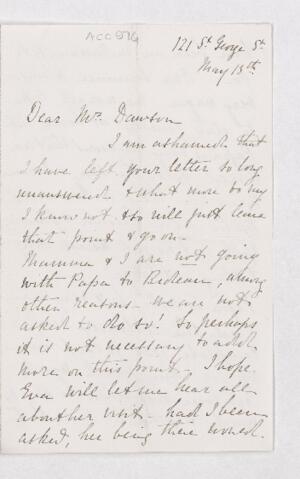 ACC 976
121 St. George St.
May 13th.
Dear Mrs. Dawson
I am ashamed that
I have left your letter so long
unanswered & what more to say
I know not & so will just leave
that point & go on -
Mamma & I are not going
with Papa to Rideau, among
other reasons - we are not
asked to do so! So perhaps
it is not necessary to add
more on this point. I hope
Eva will let me hear all
about her visit - had I been
asked, her being there would